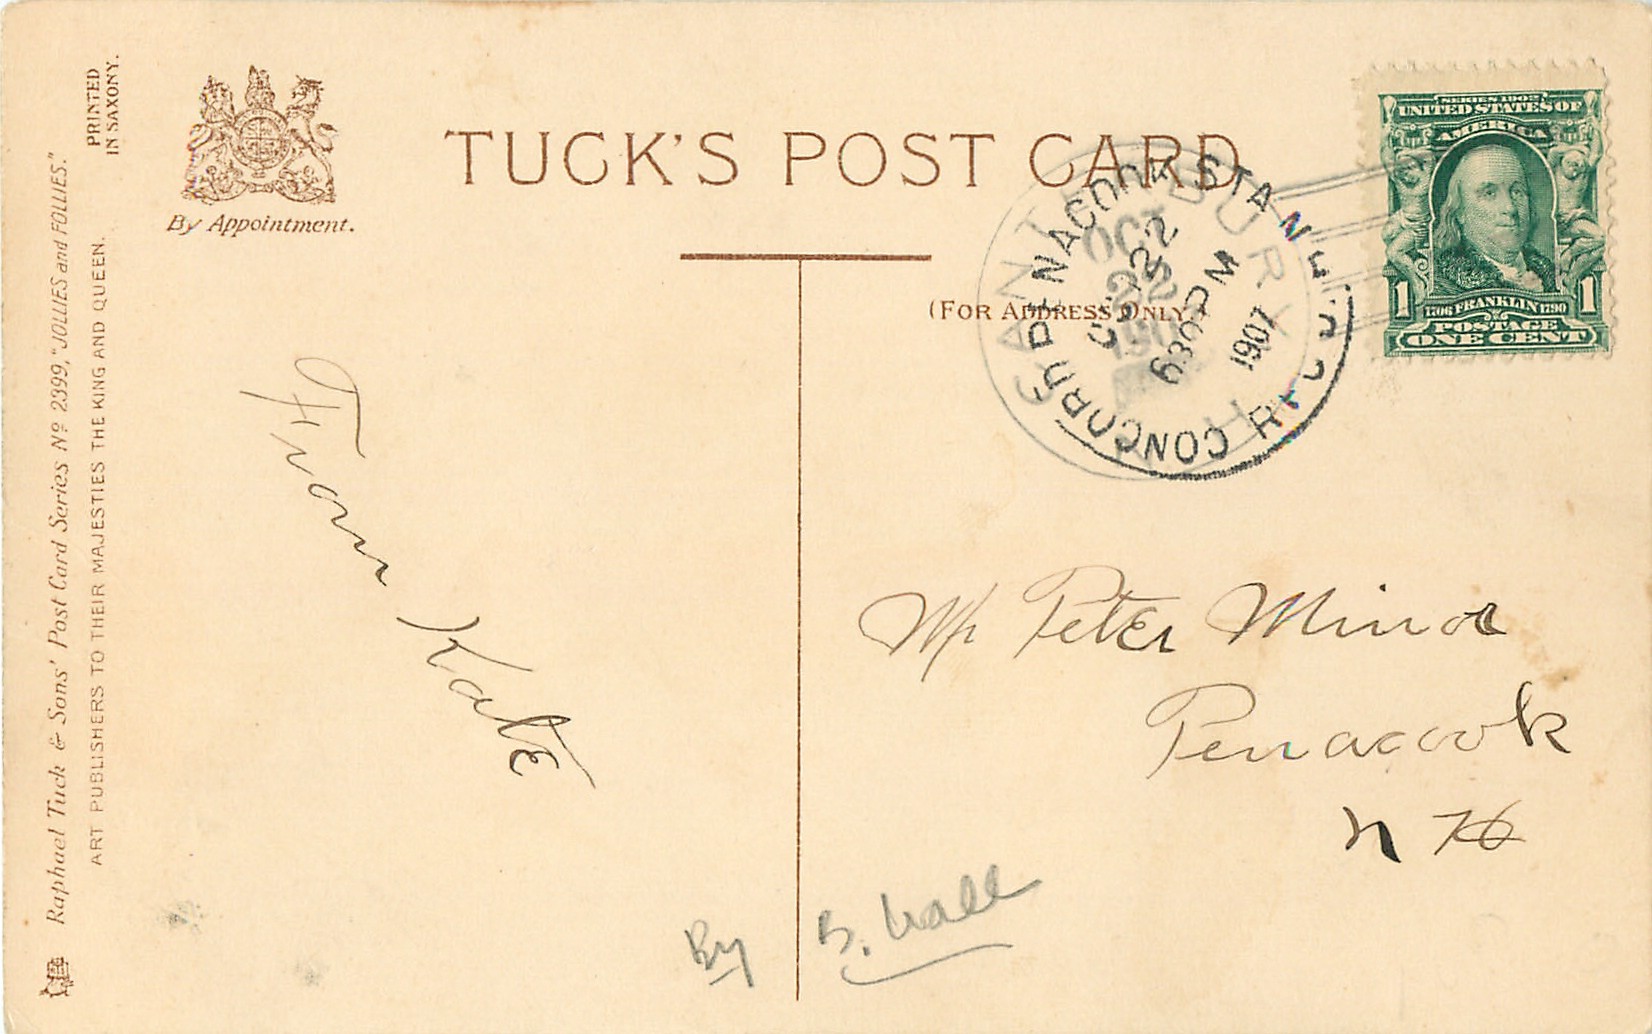 PRINTED
IN SAXONY.
Raphael Tuck & Sons' Post Card Series Nº 2399, "JOLLIES and FOLLIES."
ART PUBLISHERS TO THEIR MAJESTIES THE KING AND QUEEN.
By Appointment.
TUCK'S POST CARD
(FOR ADDRESS ONLY.)
SERIES 1902
UNITED STATES OF
AMERICA
1 1
1706 FRANKLIN 1790
POSTAGE
ONE CENT
CANTERBURY
OCT
22
PENACOOK STA
CONCORD
OCT 22
630 PM
1907
N.H.
REC'D.
From Kate
Mr Peter Minor
Penacook
N H
By B. Wall